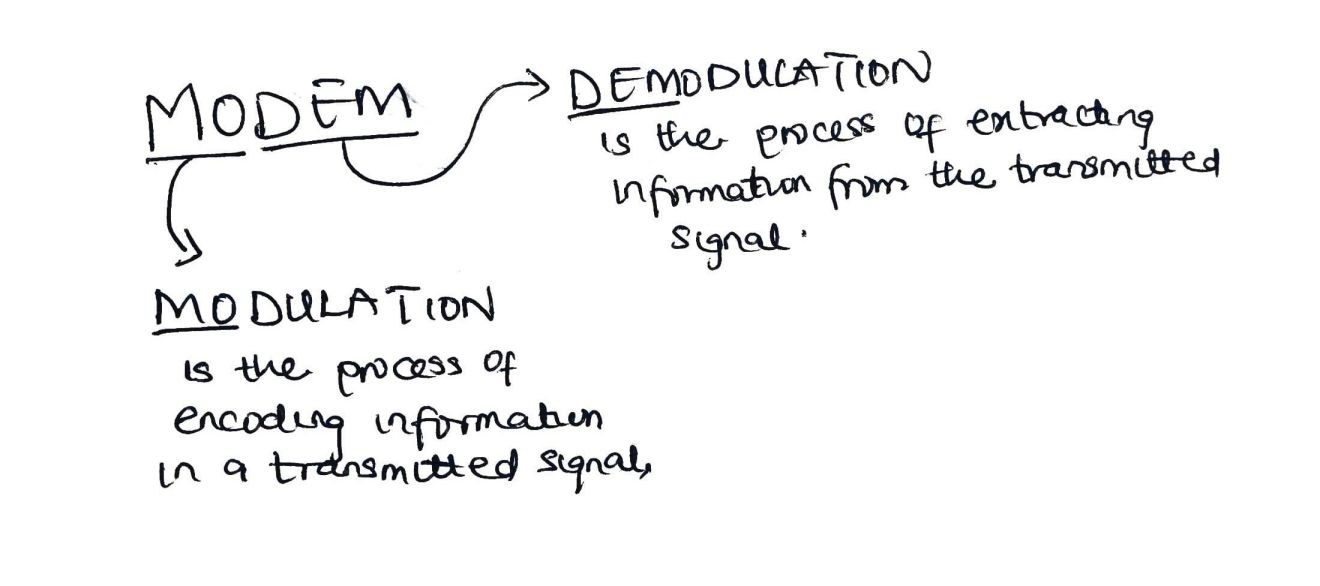 MODEM
DEMODULATION
is the process of extracting
information from the transmitted
signal.
MODULATION
is the process of
encoding information
in a transmitted signal,